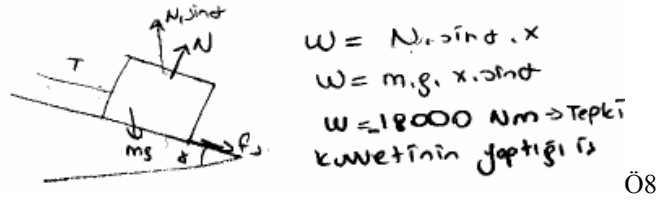 N.sinα
N
T
mg
α
fs
W = N.sinα.x
W = m.g.x.sinα
W = 18000 Nm → Tepki
kuvvetinin yaptığı iş
Ö8